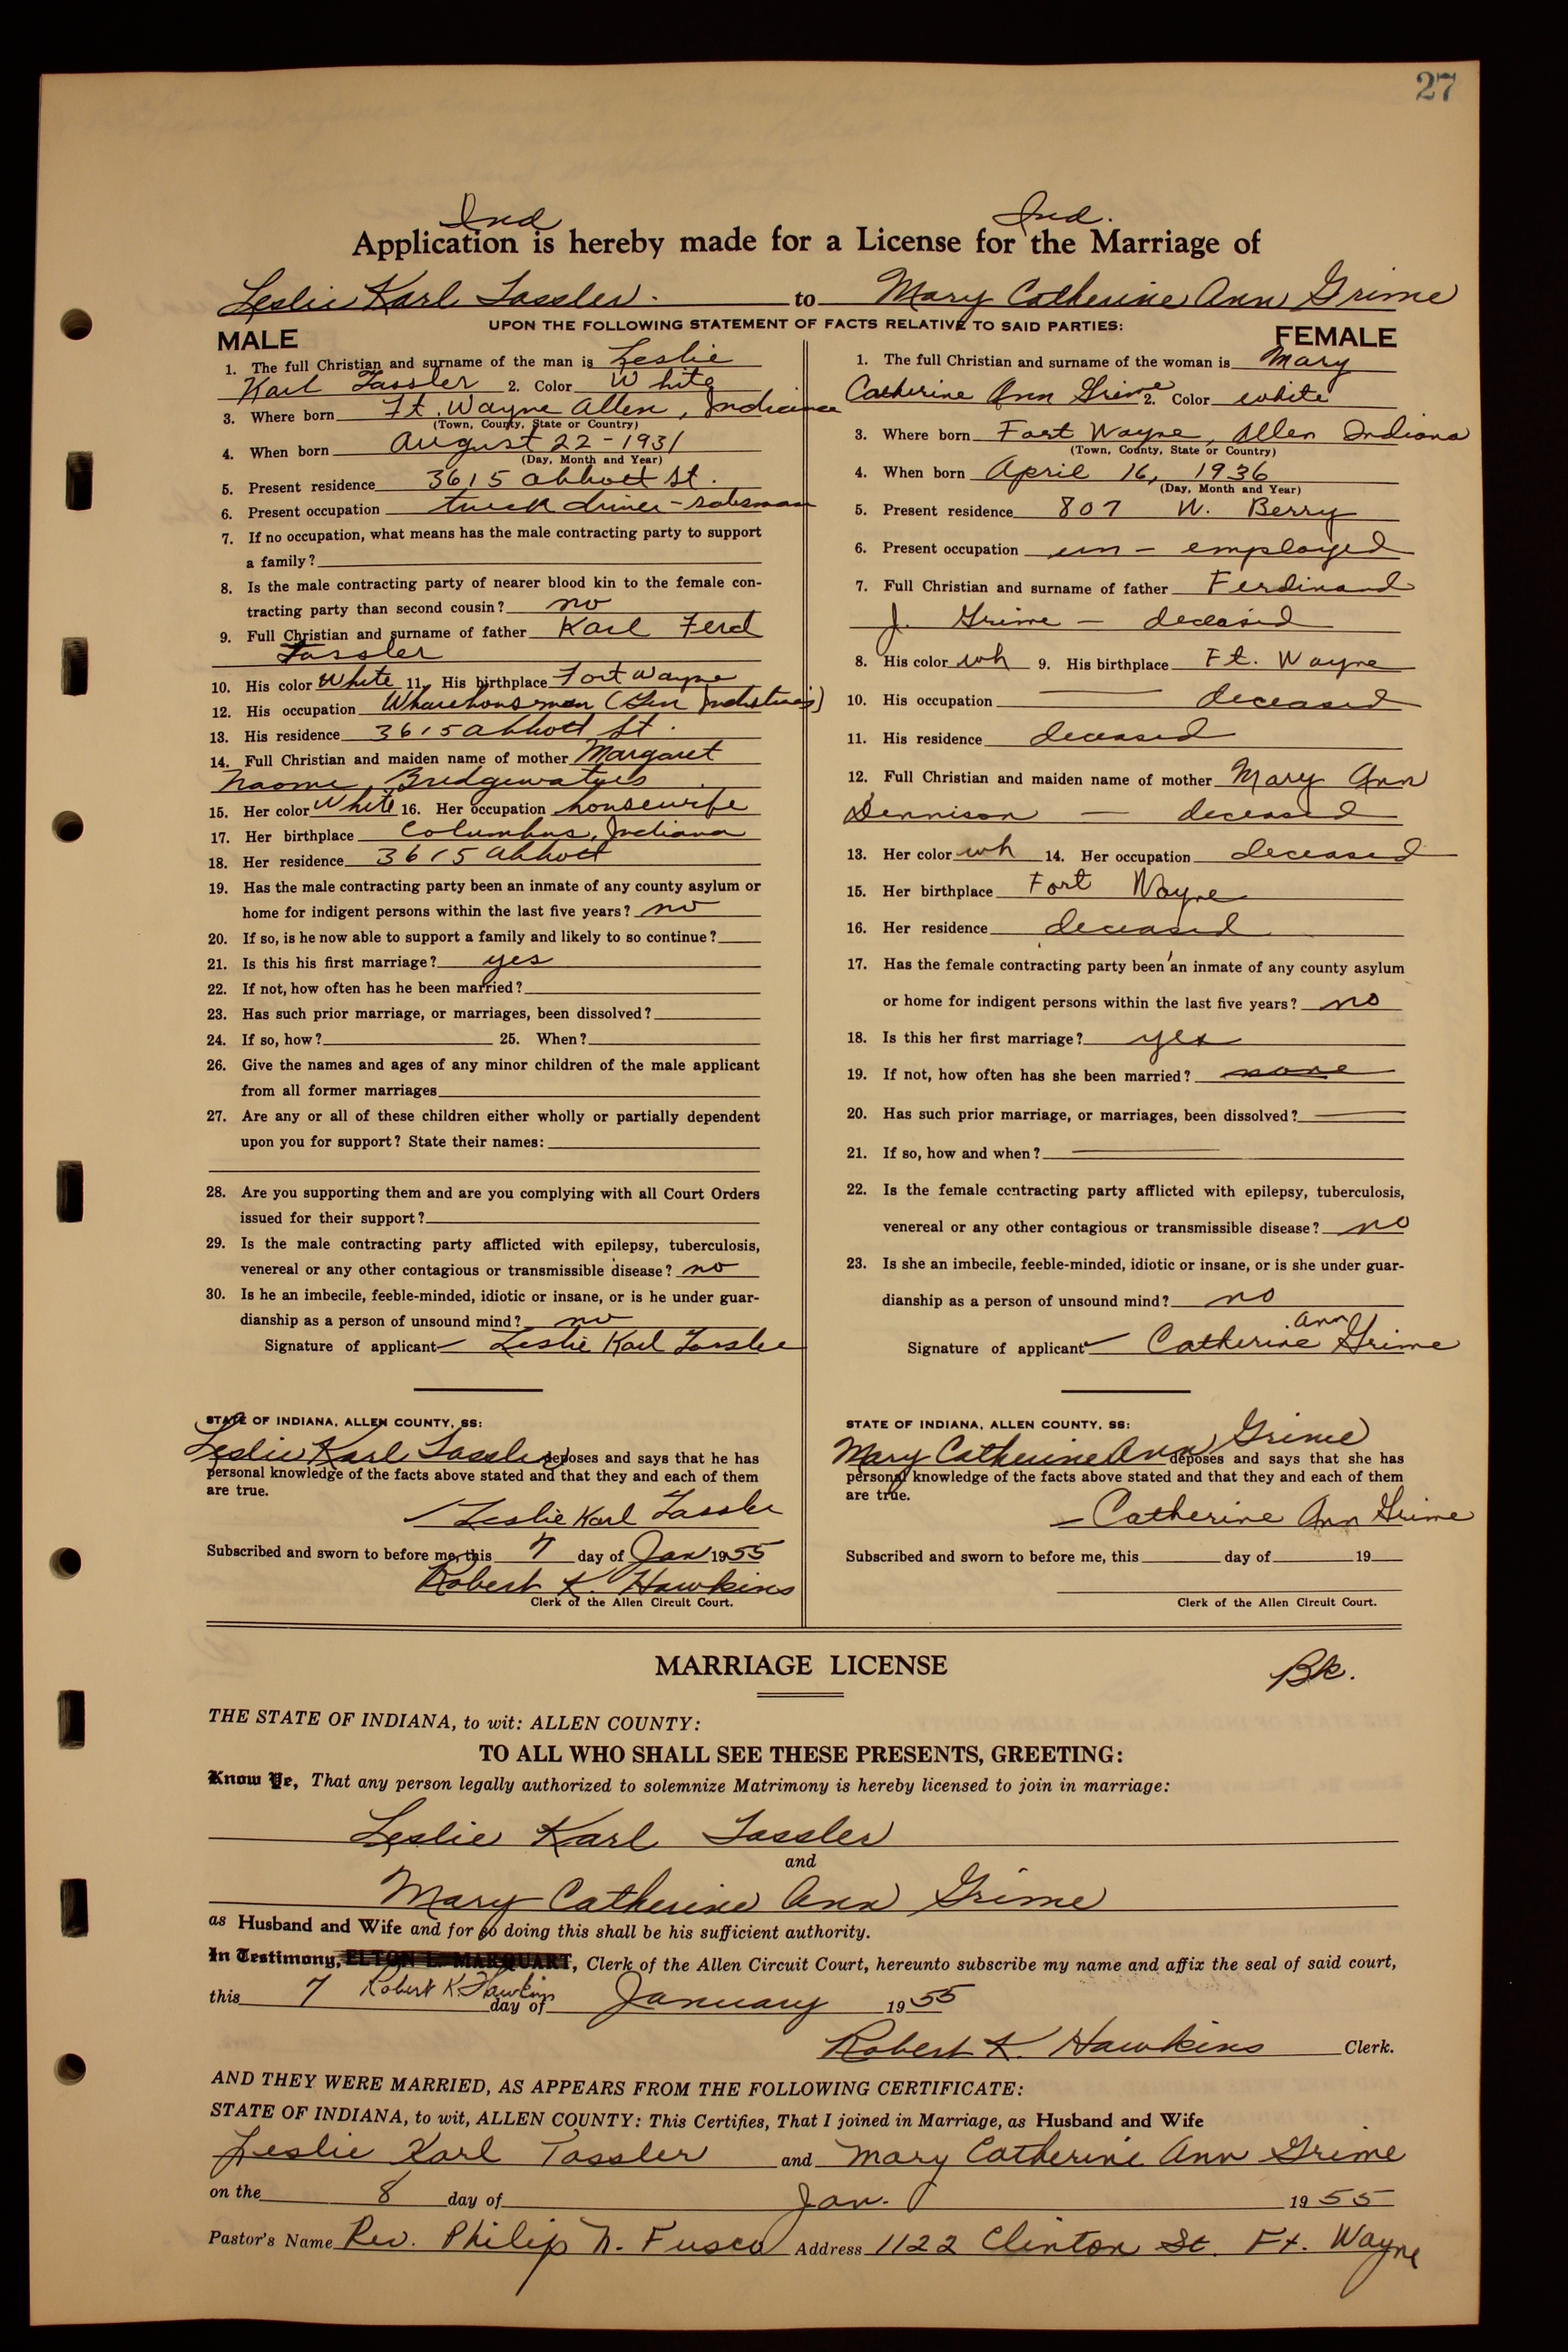 27
Ind Ind.
Application is hereby made for a License for the Marriage of
Leslie Karl Tassler. to Mary Catherine Ann Grime
UPON THE FOLLOWING STATEMENT OF FACTS RELATIVE TO SAID PARTIES:
MALE
1. The full Christian and surname of the man is Leslie
Karl Tassler 2. Color White
3. Where born Ft. Wayne Allen, Indiana
(Town, County, State or Country)
4. When born August 22-1931
(Day, Month and Year)
5. Present residence 3615 Abbott St.
6. Present occupation truck driver - salesman
7. If no occupation, what means has the male contracting party to support
a family?
8. Is the male contracting party of nearer blood kin to the female con-
tracting party than second cousin? no
9. Full Christian and surname of father Karl Ferd
Tassler
10. His color White 11. His birthplace Fort Wayne
12. His occupation Wharehousman (Gen
13. His residence 3615 Abbott St.
14. Full Christian and maiden name of mother Margaret
Naome
15. Her color White 16. Her occupation housewife
17. Her birthplace Columbus, Indiana
18. Her residence 3615 Abbott
19. Has the male contracting party been an inmate of any county asylum or
home for indigent persons within the last five years? no
20. If so, is he now able to support a family and likely to so continue?
21. Is this his first marriage? yes
22. If not, how often has he been married?
23. Has such prior marriage, or marriages, been dissolved?
24. If so, how? 25. When?
26. Give the names and ages of any minor children of the male applicant
from all former marriages
27. Are any or all of these children either wholly or partially dependent
upon you for support? State their names:
28. Are you supporting them and are you complying with all Court Orders
issued for their support?
29. Is the male contracting party afflicted with epilepsy, tuberculosis,
venereal or any other contagious or transmissible disease? no
30. Is he an imbecile, feeble-minded, idiotic or insane, or is he under guar-
dianship as a person of unsound mind? no
Signature of applicant Leslie Karl Tassler
STATE OF INDIANA, ALLEN COUNTY, SS:
Leslie Karl Tassler deposes and says that he has
personal knowledge of the facts above stated and that they and each of them
are true.
Leslie Karl Tassler
Subscribed and sworn to before me, this 7 day of Jan 1955
Robert K. Hawkins
Clerk of the Allen Circuit Court.
FEMALE
1. The full Christian and surname of the woman is Mary
Catherine Ann Grime 2. Color white
3. Where born Fort Wayne, Allen Indiana
(Town, County, State or Country)
4. When born April 16, 1936
(Day, Month and Year)
5. Present residence 807 W. Berry
6. Present occupation un - employed
7. Full Christian and surname of father Ferdinand
J. Grime - deceased
8. His color wh 9. His birthplace Ft. Wayne
10. His occupation deceased
11. His residence deceased
12. Full Christian and maiden name of mother Mary Ann
Dennison - deceased
13. Her color wh 14. Her occupation deceased
15. Her birthplace Fort Wayne
16. Her residence deceased
17. Has the female contracting party been an inmate of any county asylum
or home for indigent persons within the last five years? no
18. Is this her first marriage? yes
19. If not, how often has she been married? none
20. Has such prior marriage, or marriages, been dissolved?
21. If so, how and when?
22. Is the female contracting party afflicted with epilepsy, tuberculosis,
venereal or any other contagious or transmissible disease? no
23. Is she an imbecile, feeble-minded, idiotic or insane, or is she under guar-
dianship as a person of unsound mind? no
Ann
Signature of applicant Catherine Grime
STATE OF INDIANA, ALLEN COUNTY, SS:
Mary Catherine Ann Grime deposes and says that she has
personal knowledge of the facts above stated and that they and each of them
are true.
Catherine Ann Grime
Subscribed and sworn to before me, this day of 19
Clerk of the Allen Circuit Court.
MARRIAGE LICENSE
Bk.
THE STATE OF INDIANA, to wit: ALLEN COUNTY:
TO ALL WHO SHALL SEE THESE PRESENTS, GREETING:
Know Ye, That any person legally authorized to solemnize Matrimony is hereby licensed to join in marriage:
Leslie Karl Tassler
and
Mary Catherine Ann Grime
as Husband and Wife and for so doing this shall be his sufficient authority.
In Testimony, ELTON L. MARQUART, Clerk of the Allen Circuit Court, hereunto subscribe my name and affix the seal of said court,
Robert K. Hawkins
this 7 day of January 1955
Robert K. Hawkins Clerk.
AND THEY WERE MARRIED, AS APPEARS FROM THE FOLLOWING CERTIFICATE:
STATE OF INDIANA, to wit, ALLEN COUNTY: This Certifies, That I joined in Marriage, as Husband and Wife
Leslie Karl Tassler and Mary Catherine Ann Grime
on the 8 day of Jan. 1955
Pastor's Name Rev. Philip N. Fusco Address 1122 Clinton St. Ft. Wayne